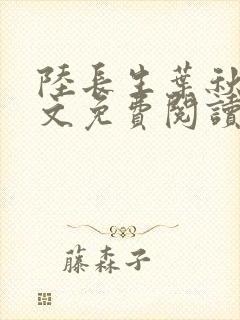 陸長生葉秋
文免費閱讀
藤森子